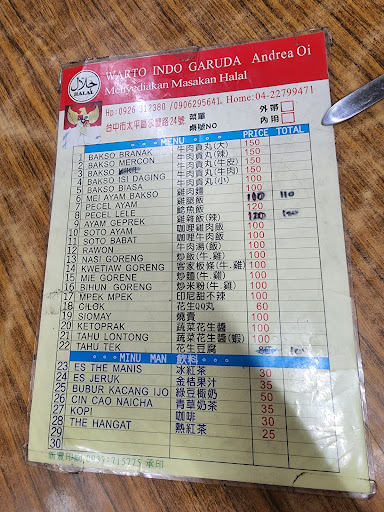 حلال
HALAL
WARTO INDO GARUDA Andrea Oi
Menyediakan Masakan Halal
Hp:0926 312380 /0906295641 Home:04-22799471
台中市太平區永豐路24號 菜單 外帶
桌號NO 內用
MENU PRICE TOTAL
1 BAKSO BRANAK 牛肉貢丸(大) 150
2 BAKSO MERCON 牛肉貢丸(辣) 150
3 BAKSO 牛肉貢丸(牛皮) 150
4 BAKSO ISI DAGING 牛肉貢丸(牛肉) 150
5 BAKSO BIASA 牛肉貢丸(小) 100
6 MEI AYAM BAKSO 雞肉麵 100
7 PECEL AYAM 雞腿飯 110
8 PECEL LELE 鯰魚飯 120
9 AYAM GEPREK 雞雞飯(辣)
10 SOTO AYAM 咖哩雞肉飯 100
11 SOTO BABAT 咖哩牛肉飯 100
12 RAWON 牛肉湯(飯) 100
13 NASI GORENG 炒飯(牛.雞) 100
14 KWETIAW GORENG 客家板條(牛.雞) 100
15 MIE GORENE 炒麵(牛.雞) 100
16 BIHUN GORENG 炒米粉(牛.雞) 100
17 MPEK MPEK 印尼甜不辣 100
18 CILOK 花生QQ丸 60
19 SIOMAY 燒賣 100
20 KETOPRAK 蔬菜花生醬 100
21 TAHU LONTONG 蔬菜花生醬(蝦) 100
22 TAHU TEK 花生豆腐
MINU MAN 飲料
23 ES THE MANIS 冰紅茶 30
24 ES JERUK 金桔果汁 35
25 BUBUR KACANG IJO 綠豆椰奶 50
26 CIN CAO NAICHA 青草奶茶 35
27 KOPI 咖啡 30
28 THE HANGAT 熱紅茶 25
29
30
承印